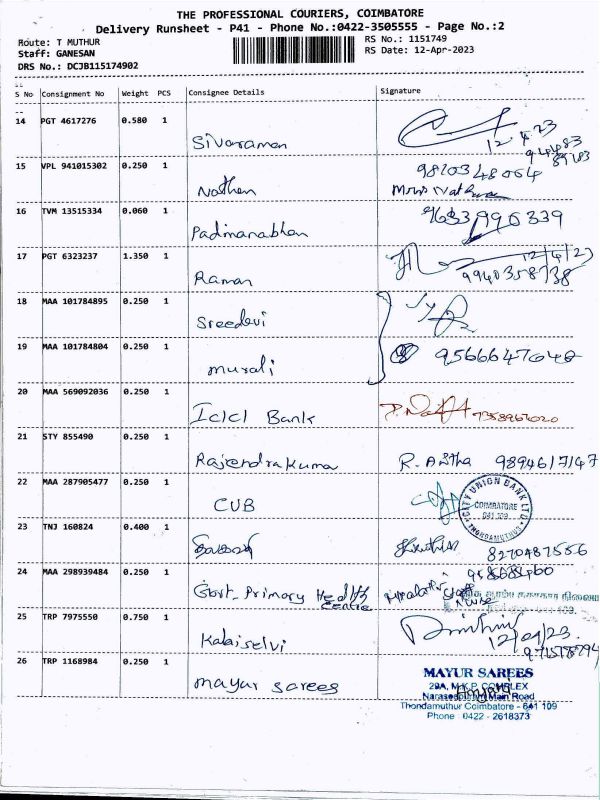 THE PROFESSIONAL COURIERS, COIMBATORE
Delivery Runsheet - P41 - Phone No.:0422-3505555 - Page No.:2
Route: T MUTHUR
RS No.: 1151749
Staff: GANESAN
RS Date: 12-Apr-2023
DRS No.: DCJB115174902
S No Consignment No Weight PCS Consignee Details Signature
14 PGT 4617276 0.580 1
Sivaraman
12.4.23
15 VPL 941015302 0.250 1
Nathan
9810348064
16 TVM 13515334 0.060 1
Padmanabhan
17 PGT 6323237 1.350 1
12/4/23
Raman
9940358738
18 MAA 101784895 0.250 1
Sreedevi
19 MAA 101784804 0.250 1
murali
20 MAA 569092036 0.250 1
ICICI Bank
21 STY 855490 0.250 1
Rajendrakumar R. Anitha 9894617147
22 MAA 287905477 0.250 1
CUB
CITY UNION BANK LTD
COIMBATORE
641 109
THONDAMUTHUR
23 TNJ 160824 0.400 1
8270487556
24 MAA 298939484 0.250 1
Govt. Primary Health
Centre
Staff
Nurse
25 TRP 7975550 0.750 1
Kalaiselvi
12/04/23
26 TRP 1168984 0.250 1
mayur sarees
MAYUR SAREES
29A, M.K.P. COMPLEX
Naraseepuram Main Road
Thondamuthur Coimbatore - 641 109
Phone : 0422 - 2618373